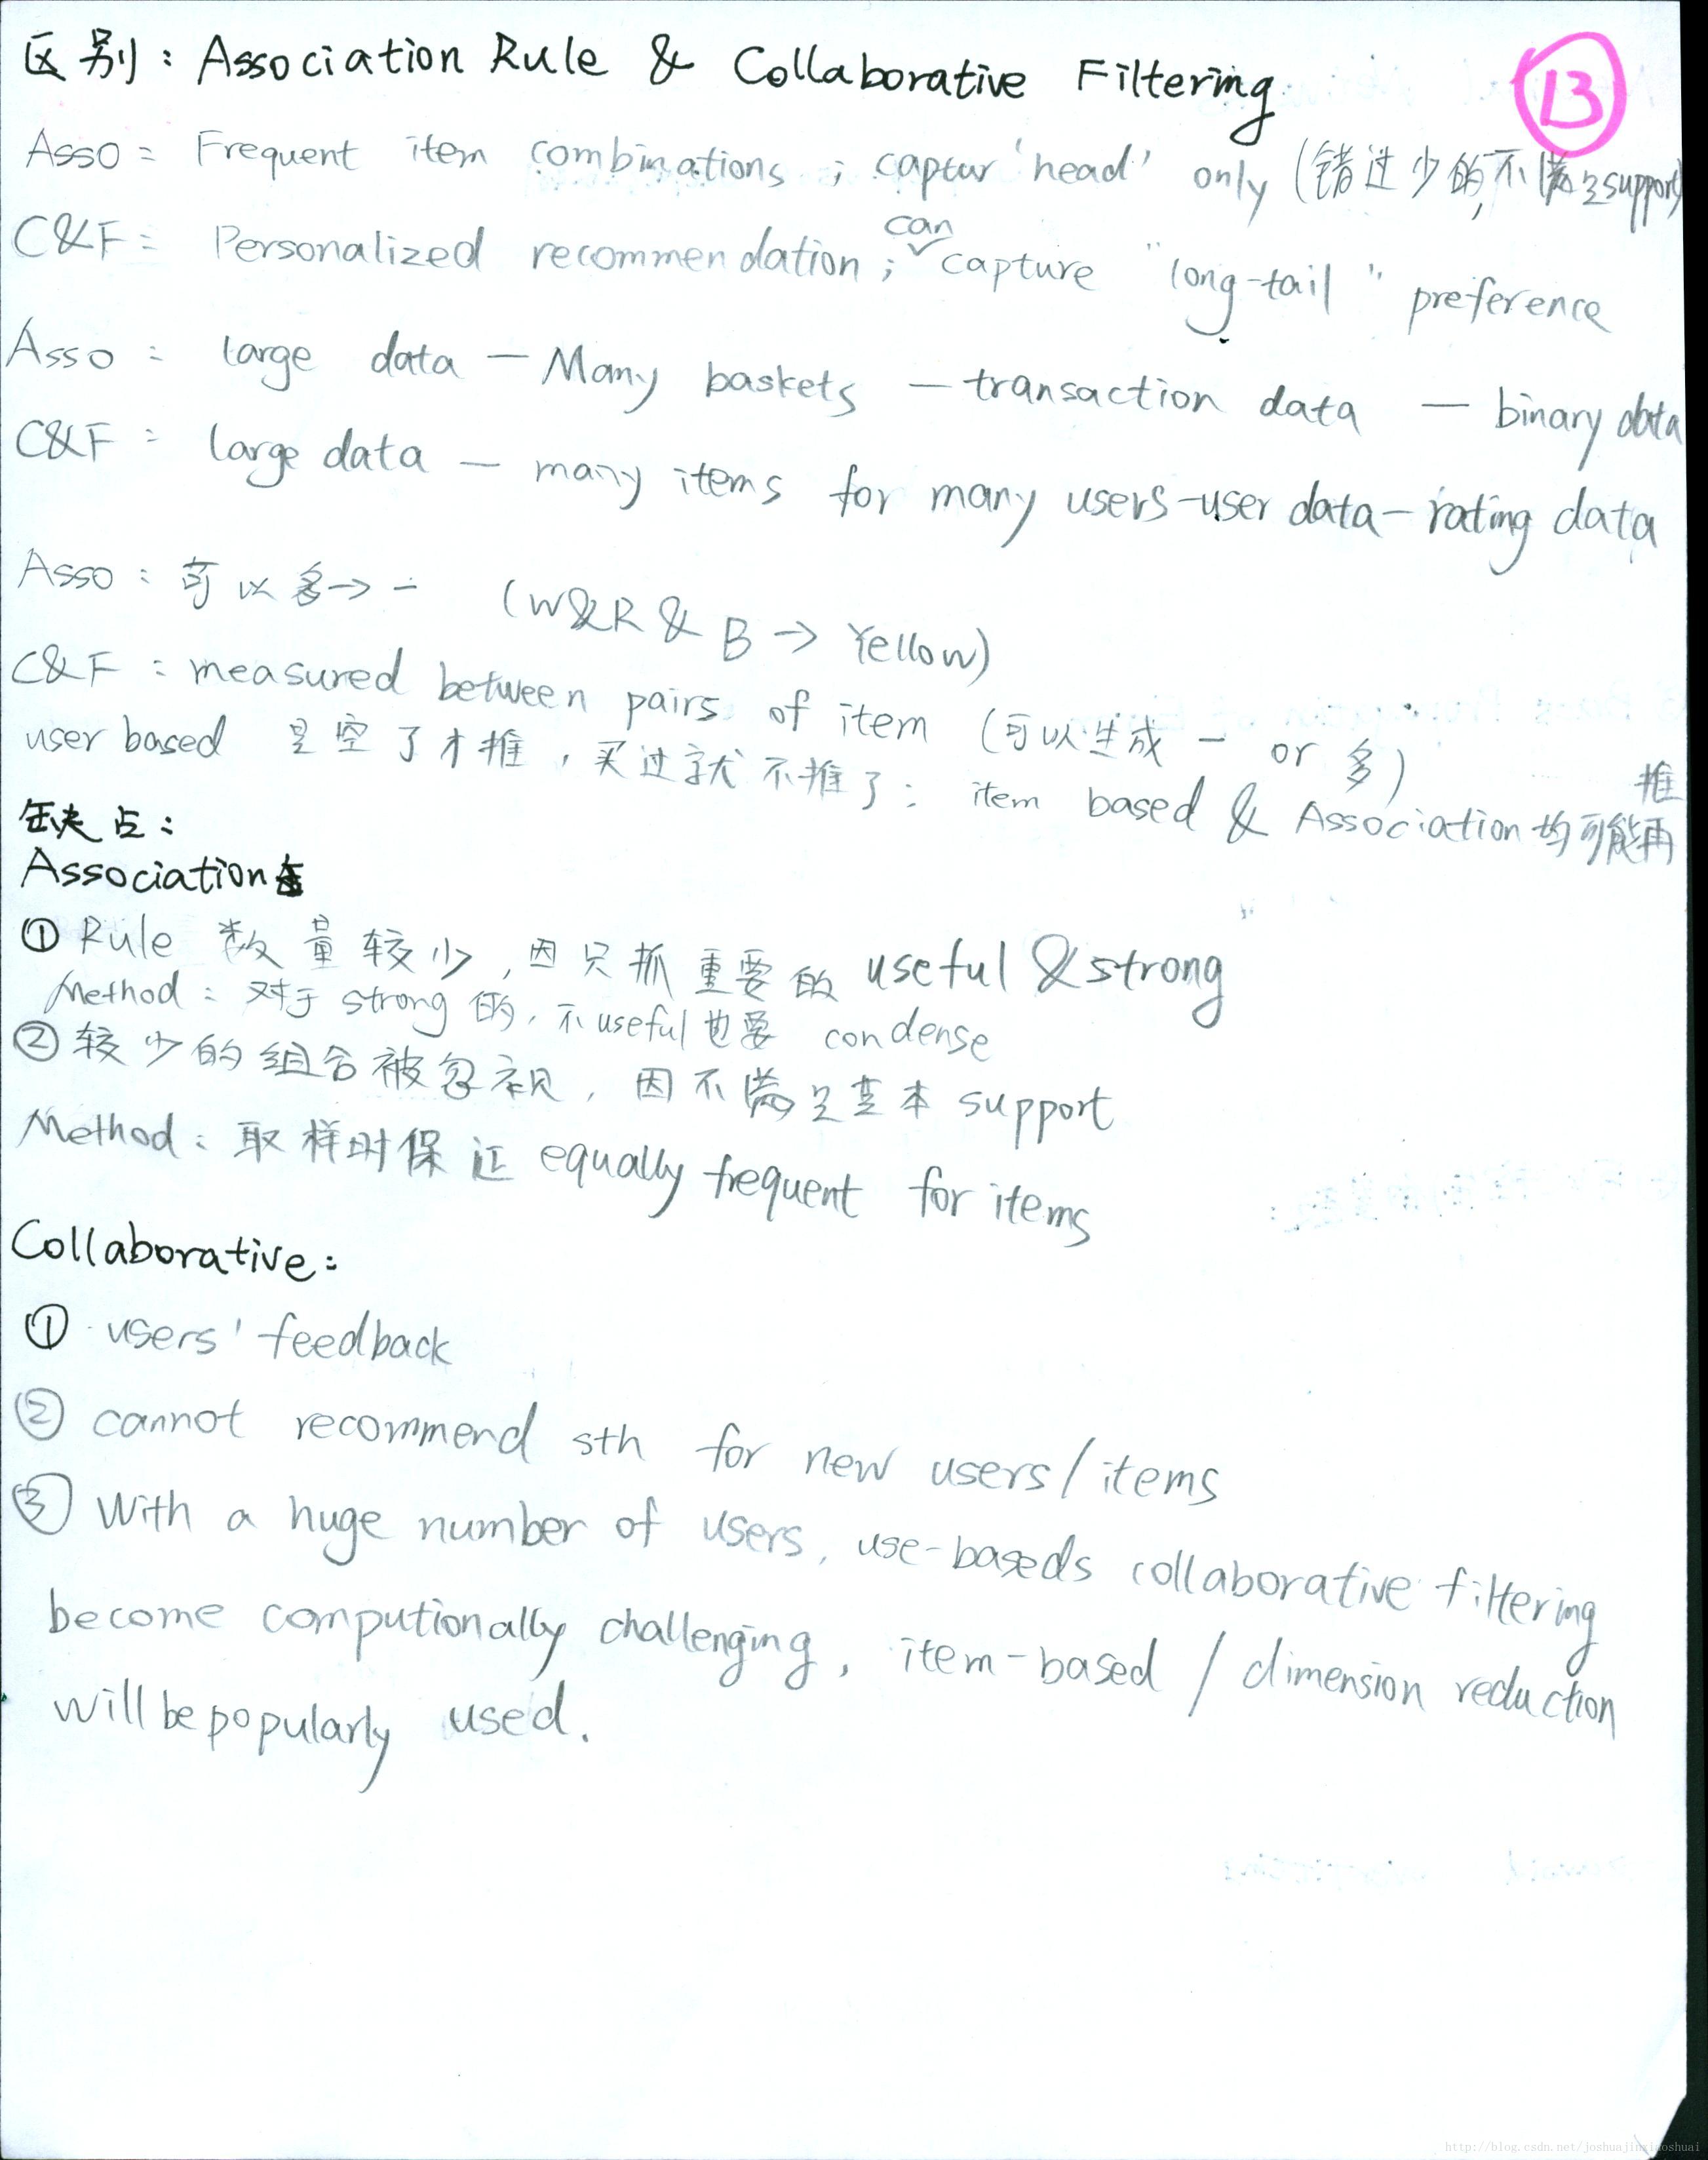 区别: Association Rule & Collaborative Filtering
13
Asso: Frequent item combinations ; captur 'head' only (错过少的, 不满足support)
C&F: Personalized recommendation ; can capture "long-tail" preference
Asso: large data — Many baskets — transaction data — binary data
C&F: large data — many items for many users-user data-rating data
Asso: 可以多→一 (W&R & B → Yellow)
C&F: measured between pairs of item (可以生成一 or 多)
user based 是空了才推, 买过就不推了; item based & Association 均可能再推
缺点:
Association
① Rule 数量较少, 因只抓重要的 useful & strong
Method: 对于 strong 的, 不useful 也要 condense
② 较少的组合被忽视, 因不满足基本 support
Method: 取样时保证 equally frequent for items
Collaborative:
① users' feedback
② cannot recommend sth for new users/items
③ With a huge number of users, use-baseds collaborative filtering
become computionally challenging, item-based / dimension reduction
will be popularly used.